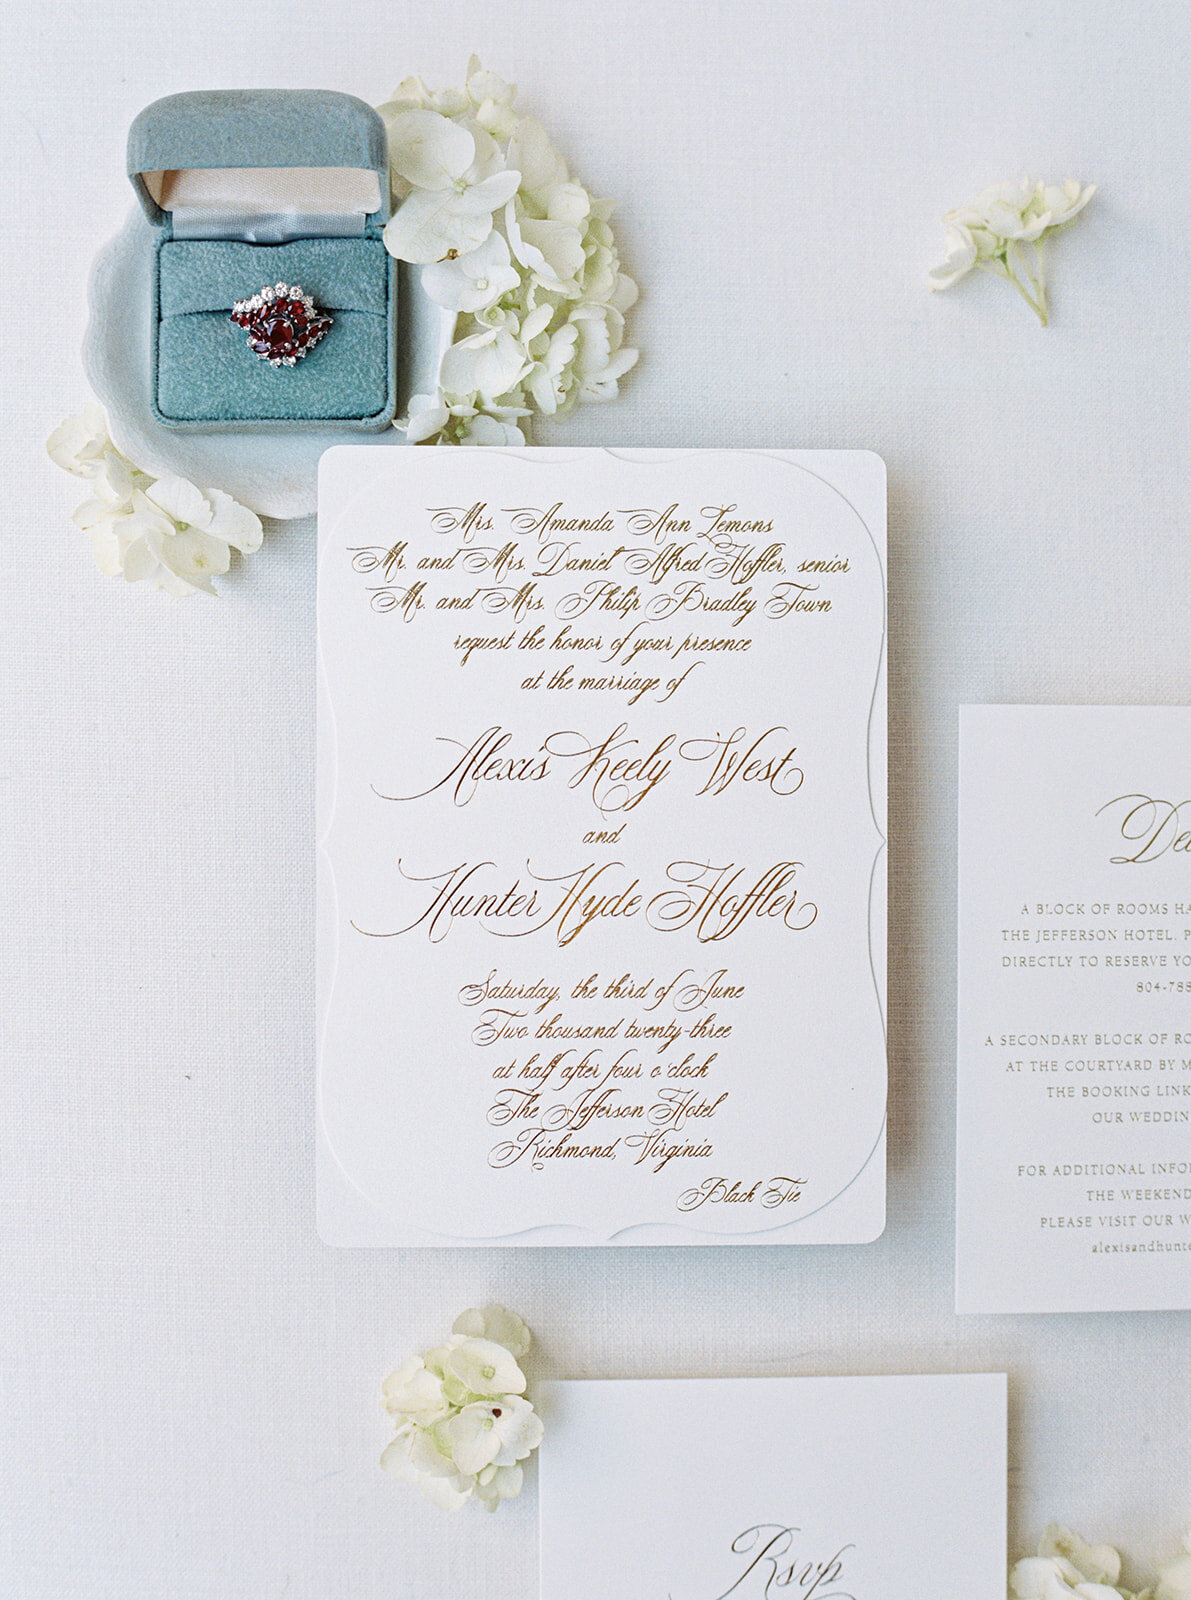 Mrs. Amanda Ann Lemons
Mr. and Mrs. Daniel Alfred Hoffler, senior
Mr. and Mrs. Philip Bradley Town
request the honor of your presence
at the marriage of
Alexis Keely West
and
Hunter Hyde Hoffler
Saturday, the third of June
Two thousand twenty-three
at half after four o'clock
The Jefferson Hotel
Richmond, Virginia
Black Tie
A BLOCK OF ROOMS
THE JEFFERSON HOTEL.
DIRECTLY TO RESERVE
804-788
A SECONDARY BLOCK OF
AT THE COURTYARD BY
THE BOOKING LINK
OUR
FOR ADDITIONAL
THE WEEKEND
PLEASE VISIT OUR
Rsvp